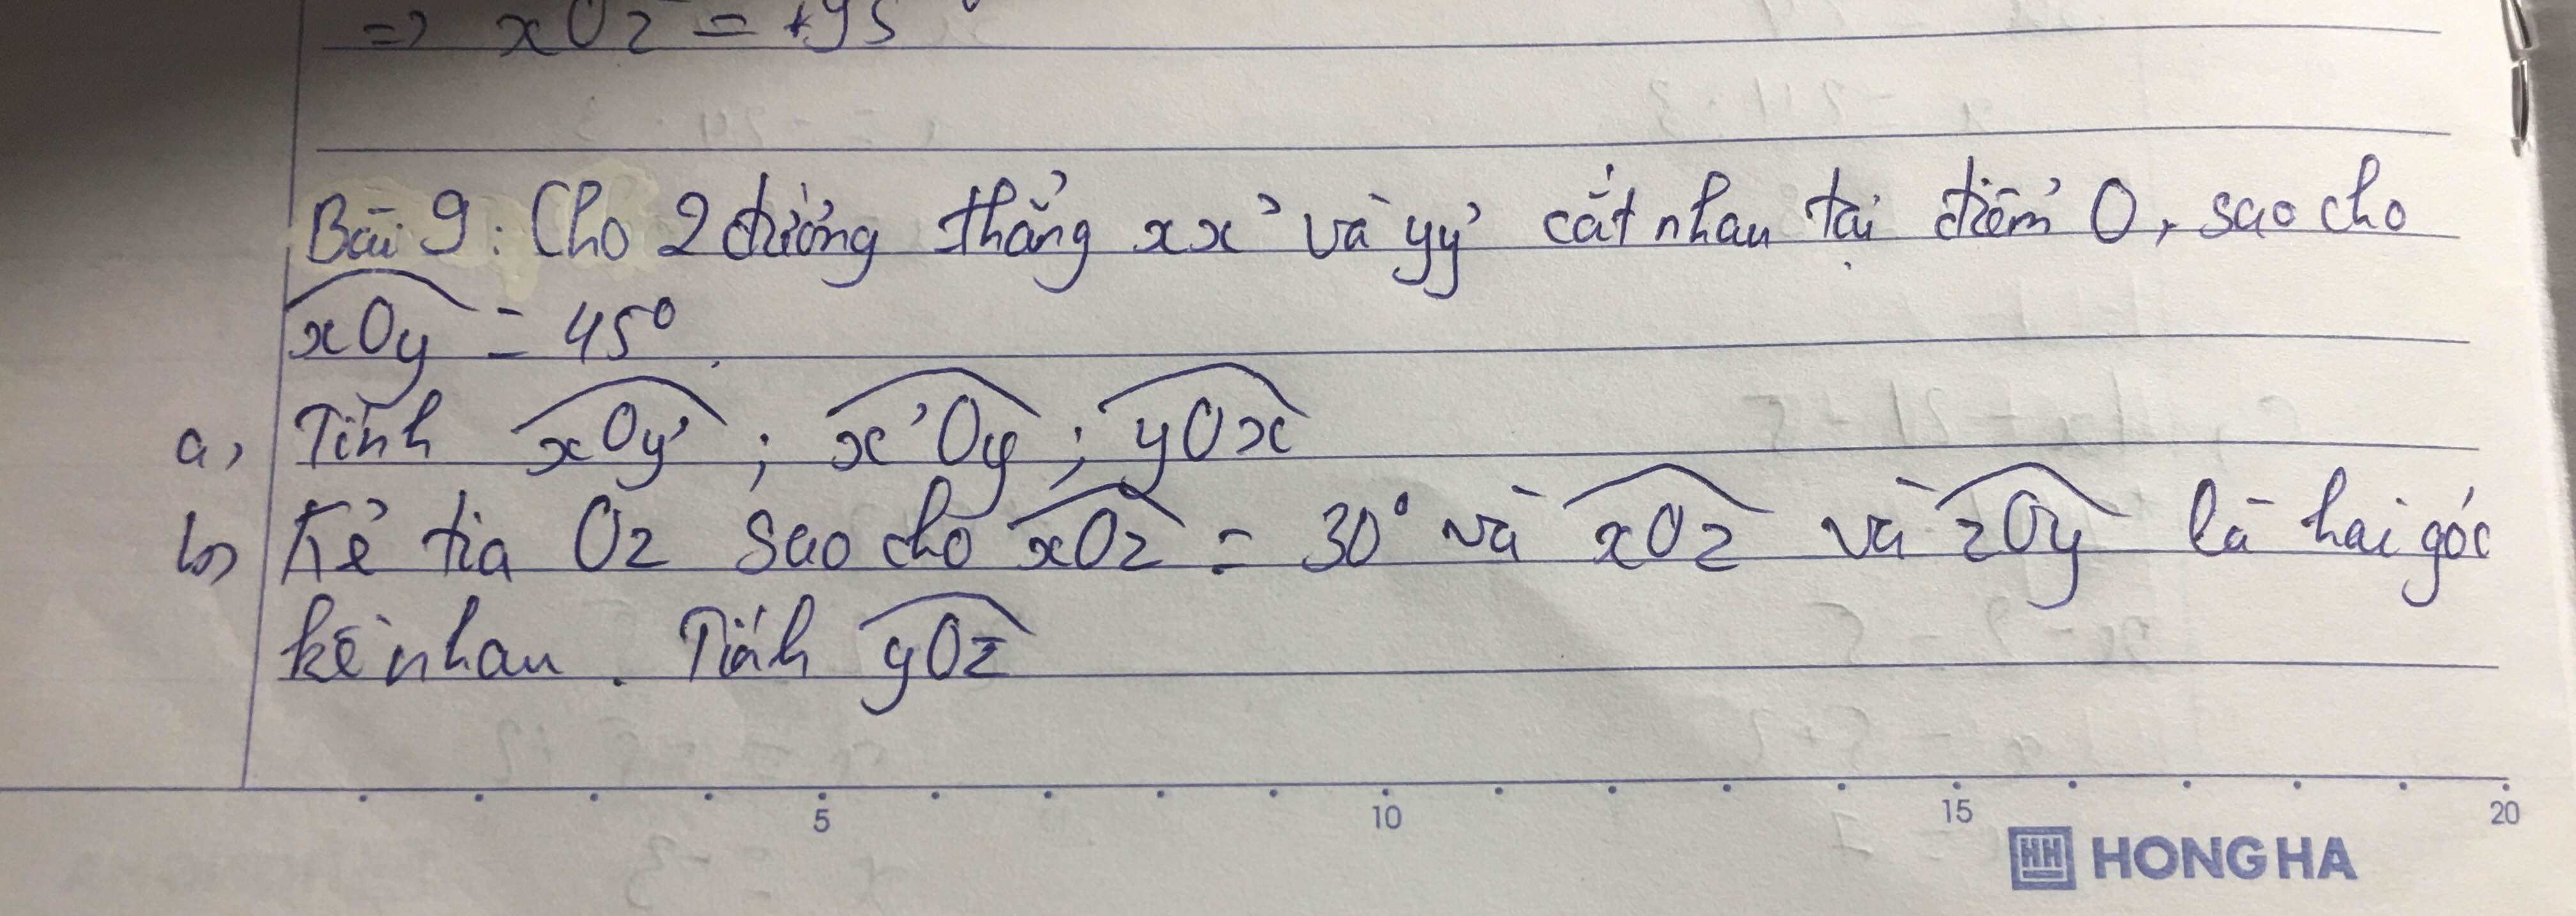 => xOz = +95°
Bài 9: Cho 2 đường thẳng xx' và yy' cắt nhau tại điểm O, sao cho
xOy = 45°.
a, Tính xOy' ; x'Oy ; yOx
b, Kẻ tia Oz sao cho xOz = 30° và xOz và zOy là hai góc
kề nhau. Tính yOz
5 10 15 20
HH HONG HA